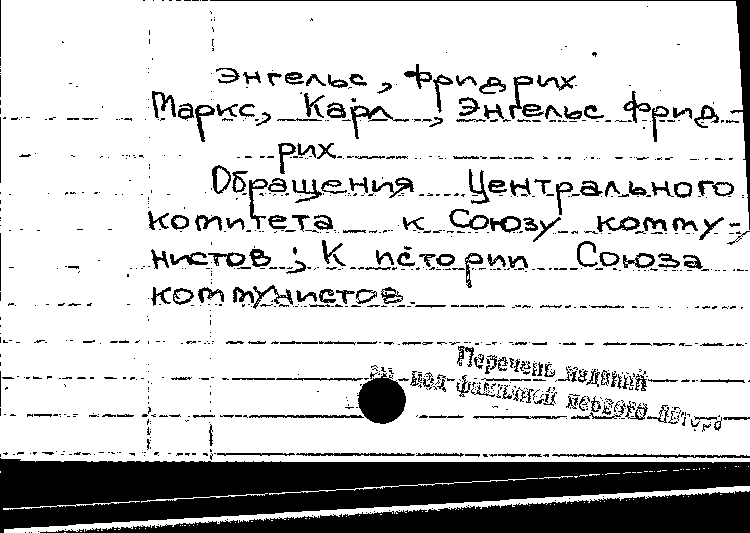 Энгельс, Фридрих
Маркс, Карл, Энгельс Фрид-
рих
Обращения Центрального
комитета к Союзу комму-
нистов; К истории Союза
коммунистов.
Перечень изданий
см. под фамилией первого автора